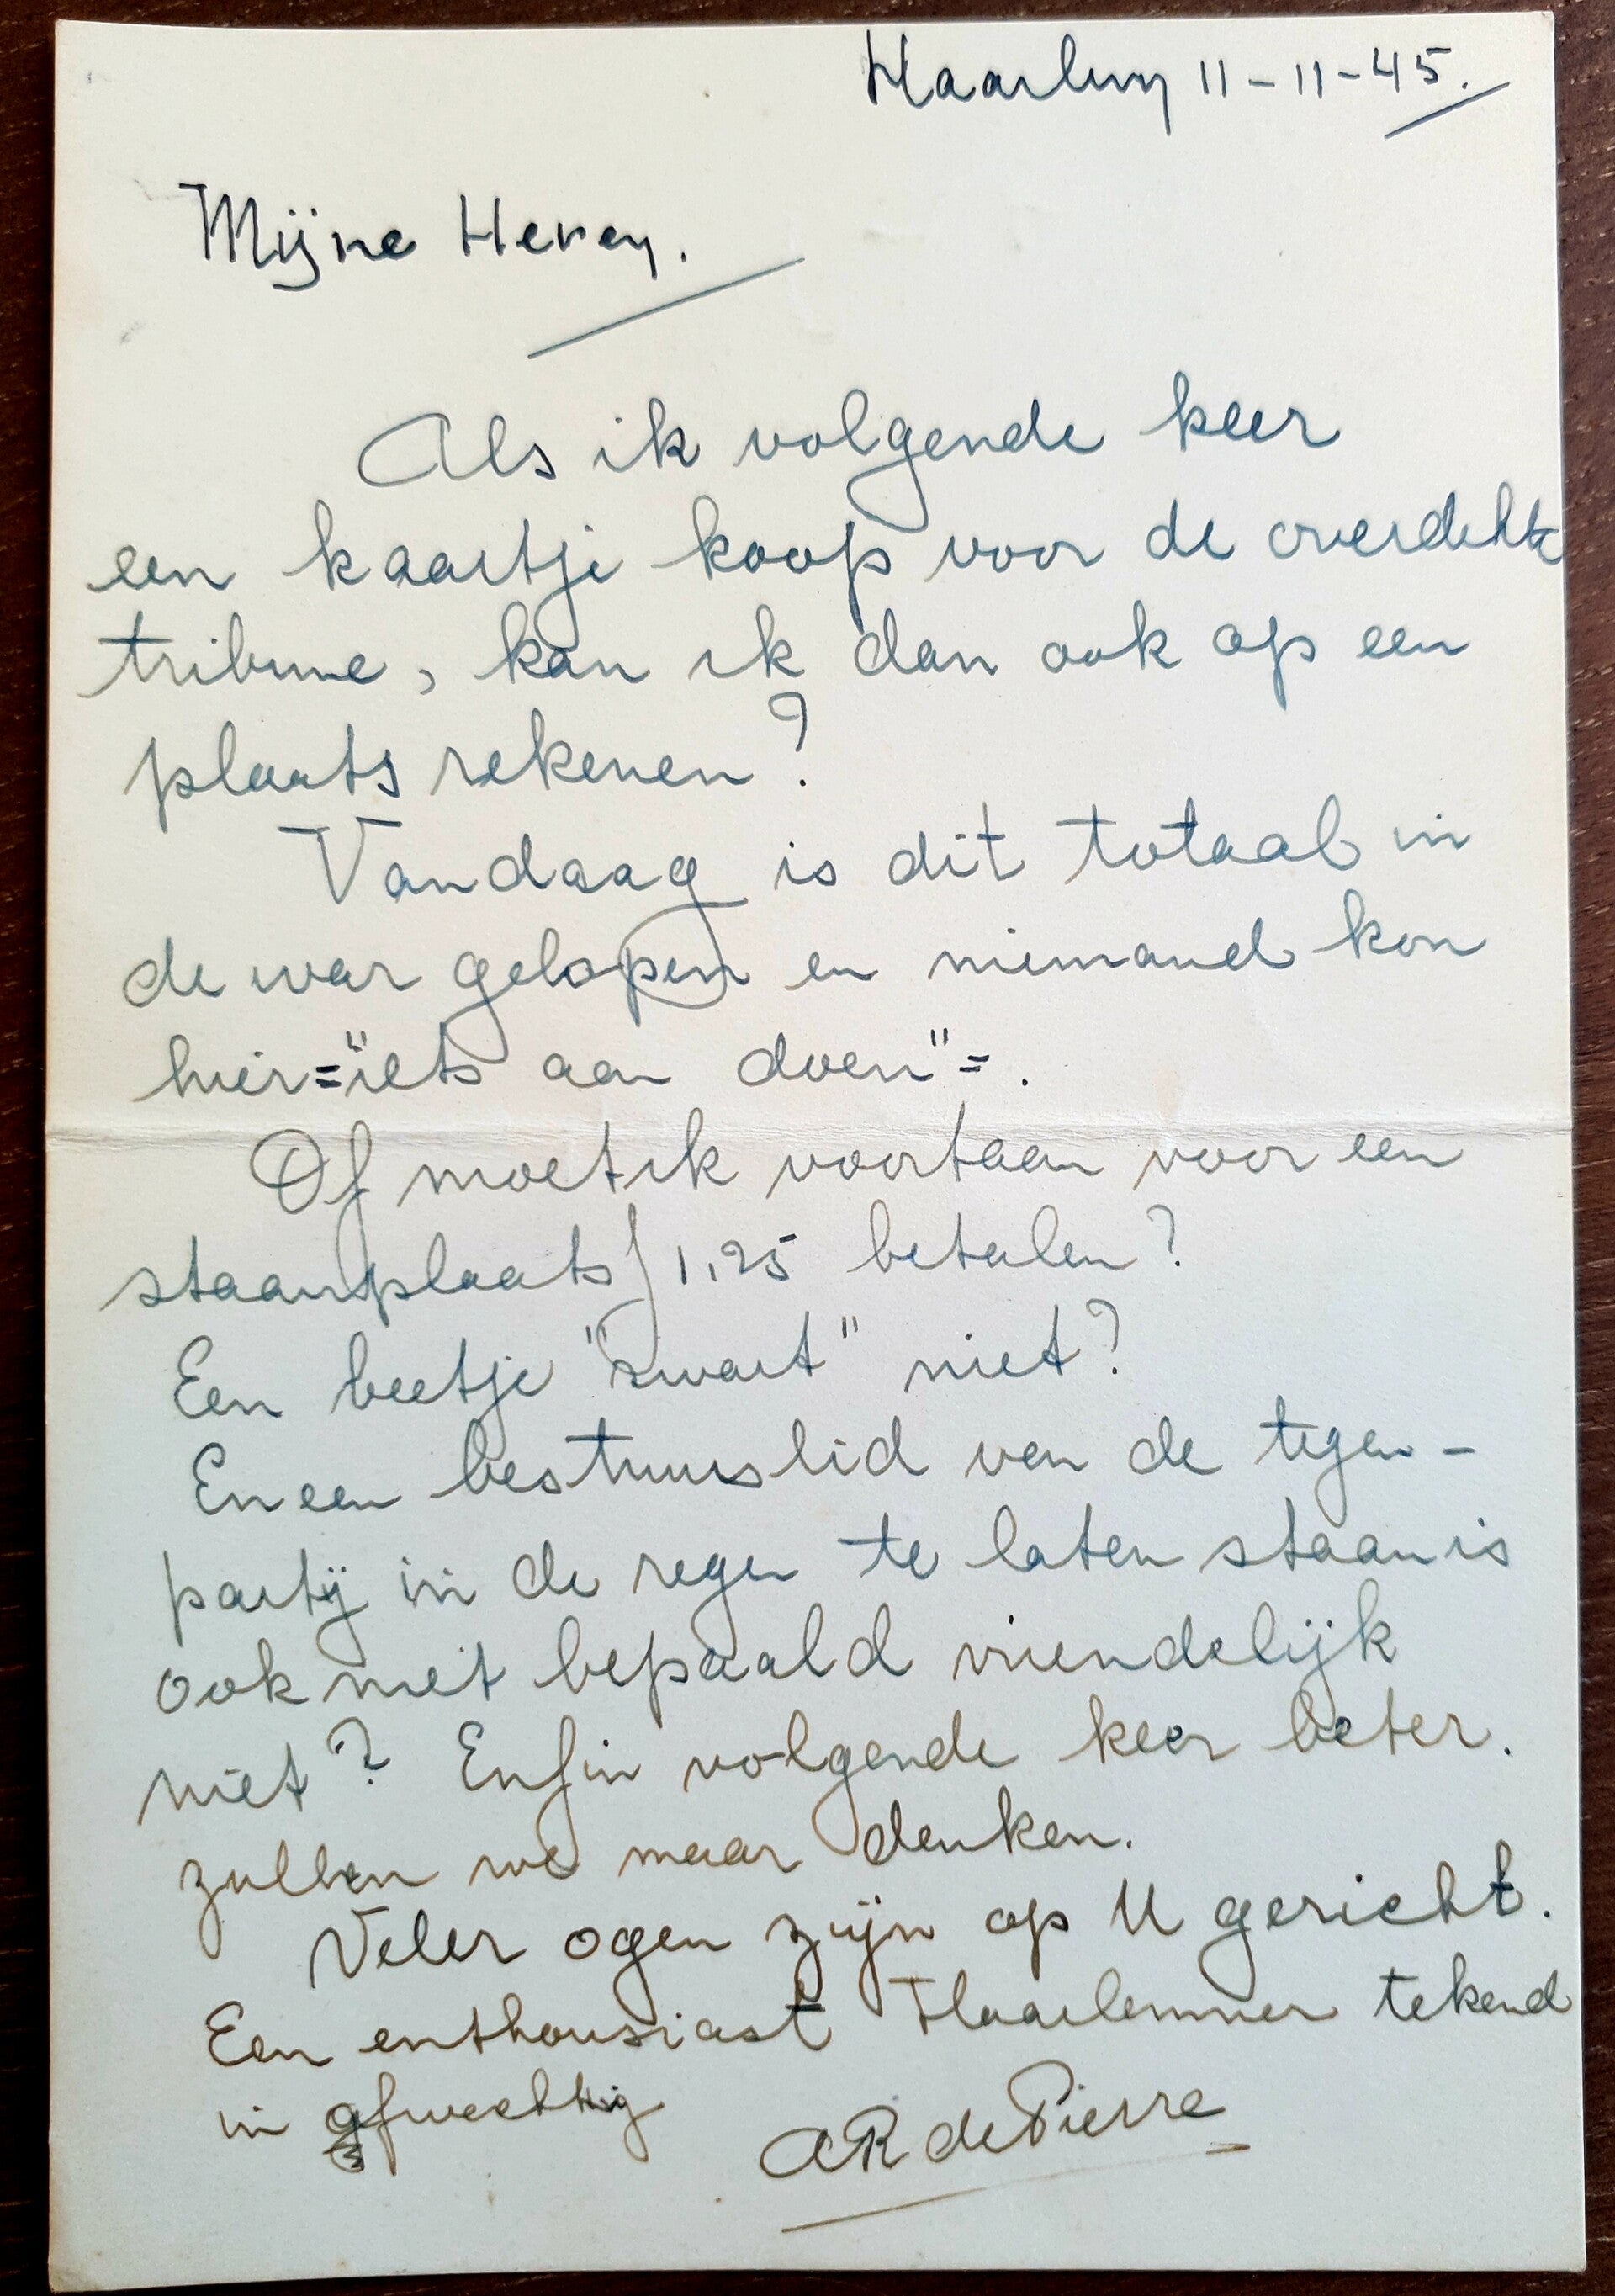 Haarlem 11-11-45.
Mijne Heren.
Als ik volgende keer
een kaartje koop voor de overdekte
tribune, kan ik dan ook op een
plaats rekenen?
Vandaag is dit totaal in
de war gelopen en niemand kon
hier="iets aan doen"=.
Of moet ik voortaan voor een
staanplaats ƒ 1,25 betalen?
Een beetje "zwart" niet?
En een bestuurslid van de tegen-
partij in de regen te laten staan is
ook niet bepaald vriendelijk
niet? Enfin volgende keer beter.
zullen we maar denken.
Veler ogen zijn op U gericht.
Een enthousiast Haarlemmer tekend
in afwachting
AR de Pierre